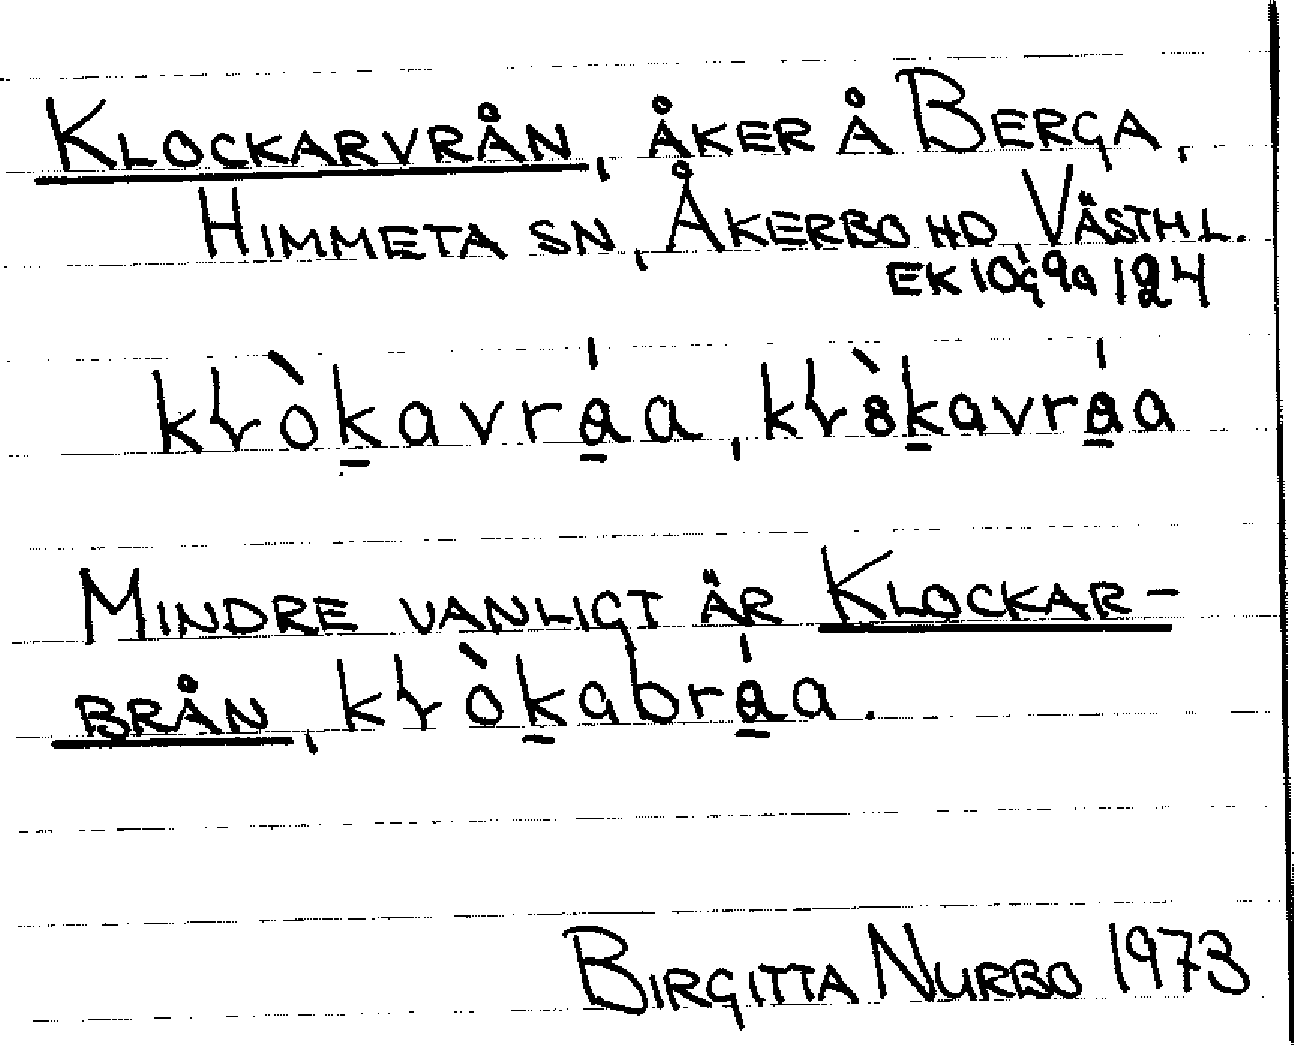 KLOCKARVRÅN, ÅKER Å BERGA,
HIMMETA SN, ÅKERBO HD, VÄSTML.
EK 10G9a 124
kɬòk̲avrá̲a, kɬòk̲avrá̲a
MINDRE VANLIGT ÄR KLOCKAR-
BRÅN, kɬòk̲abrá̲a.
BIRGITTA NURBO 1973